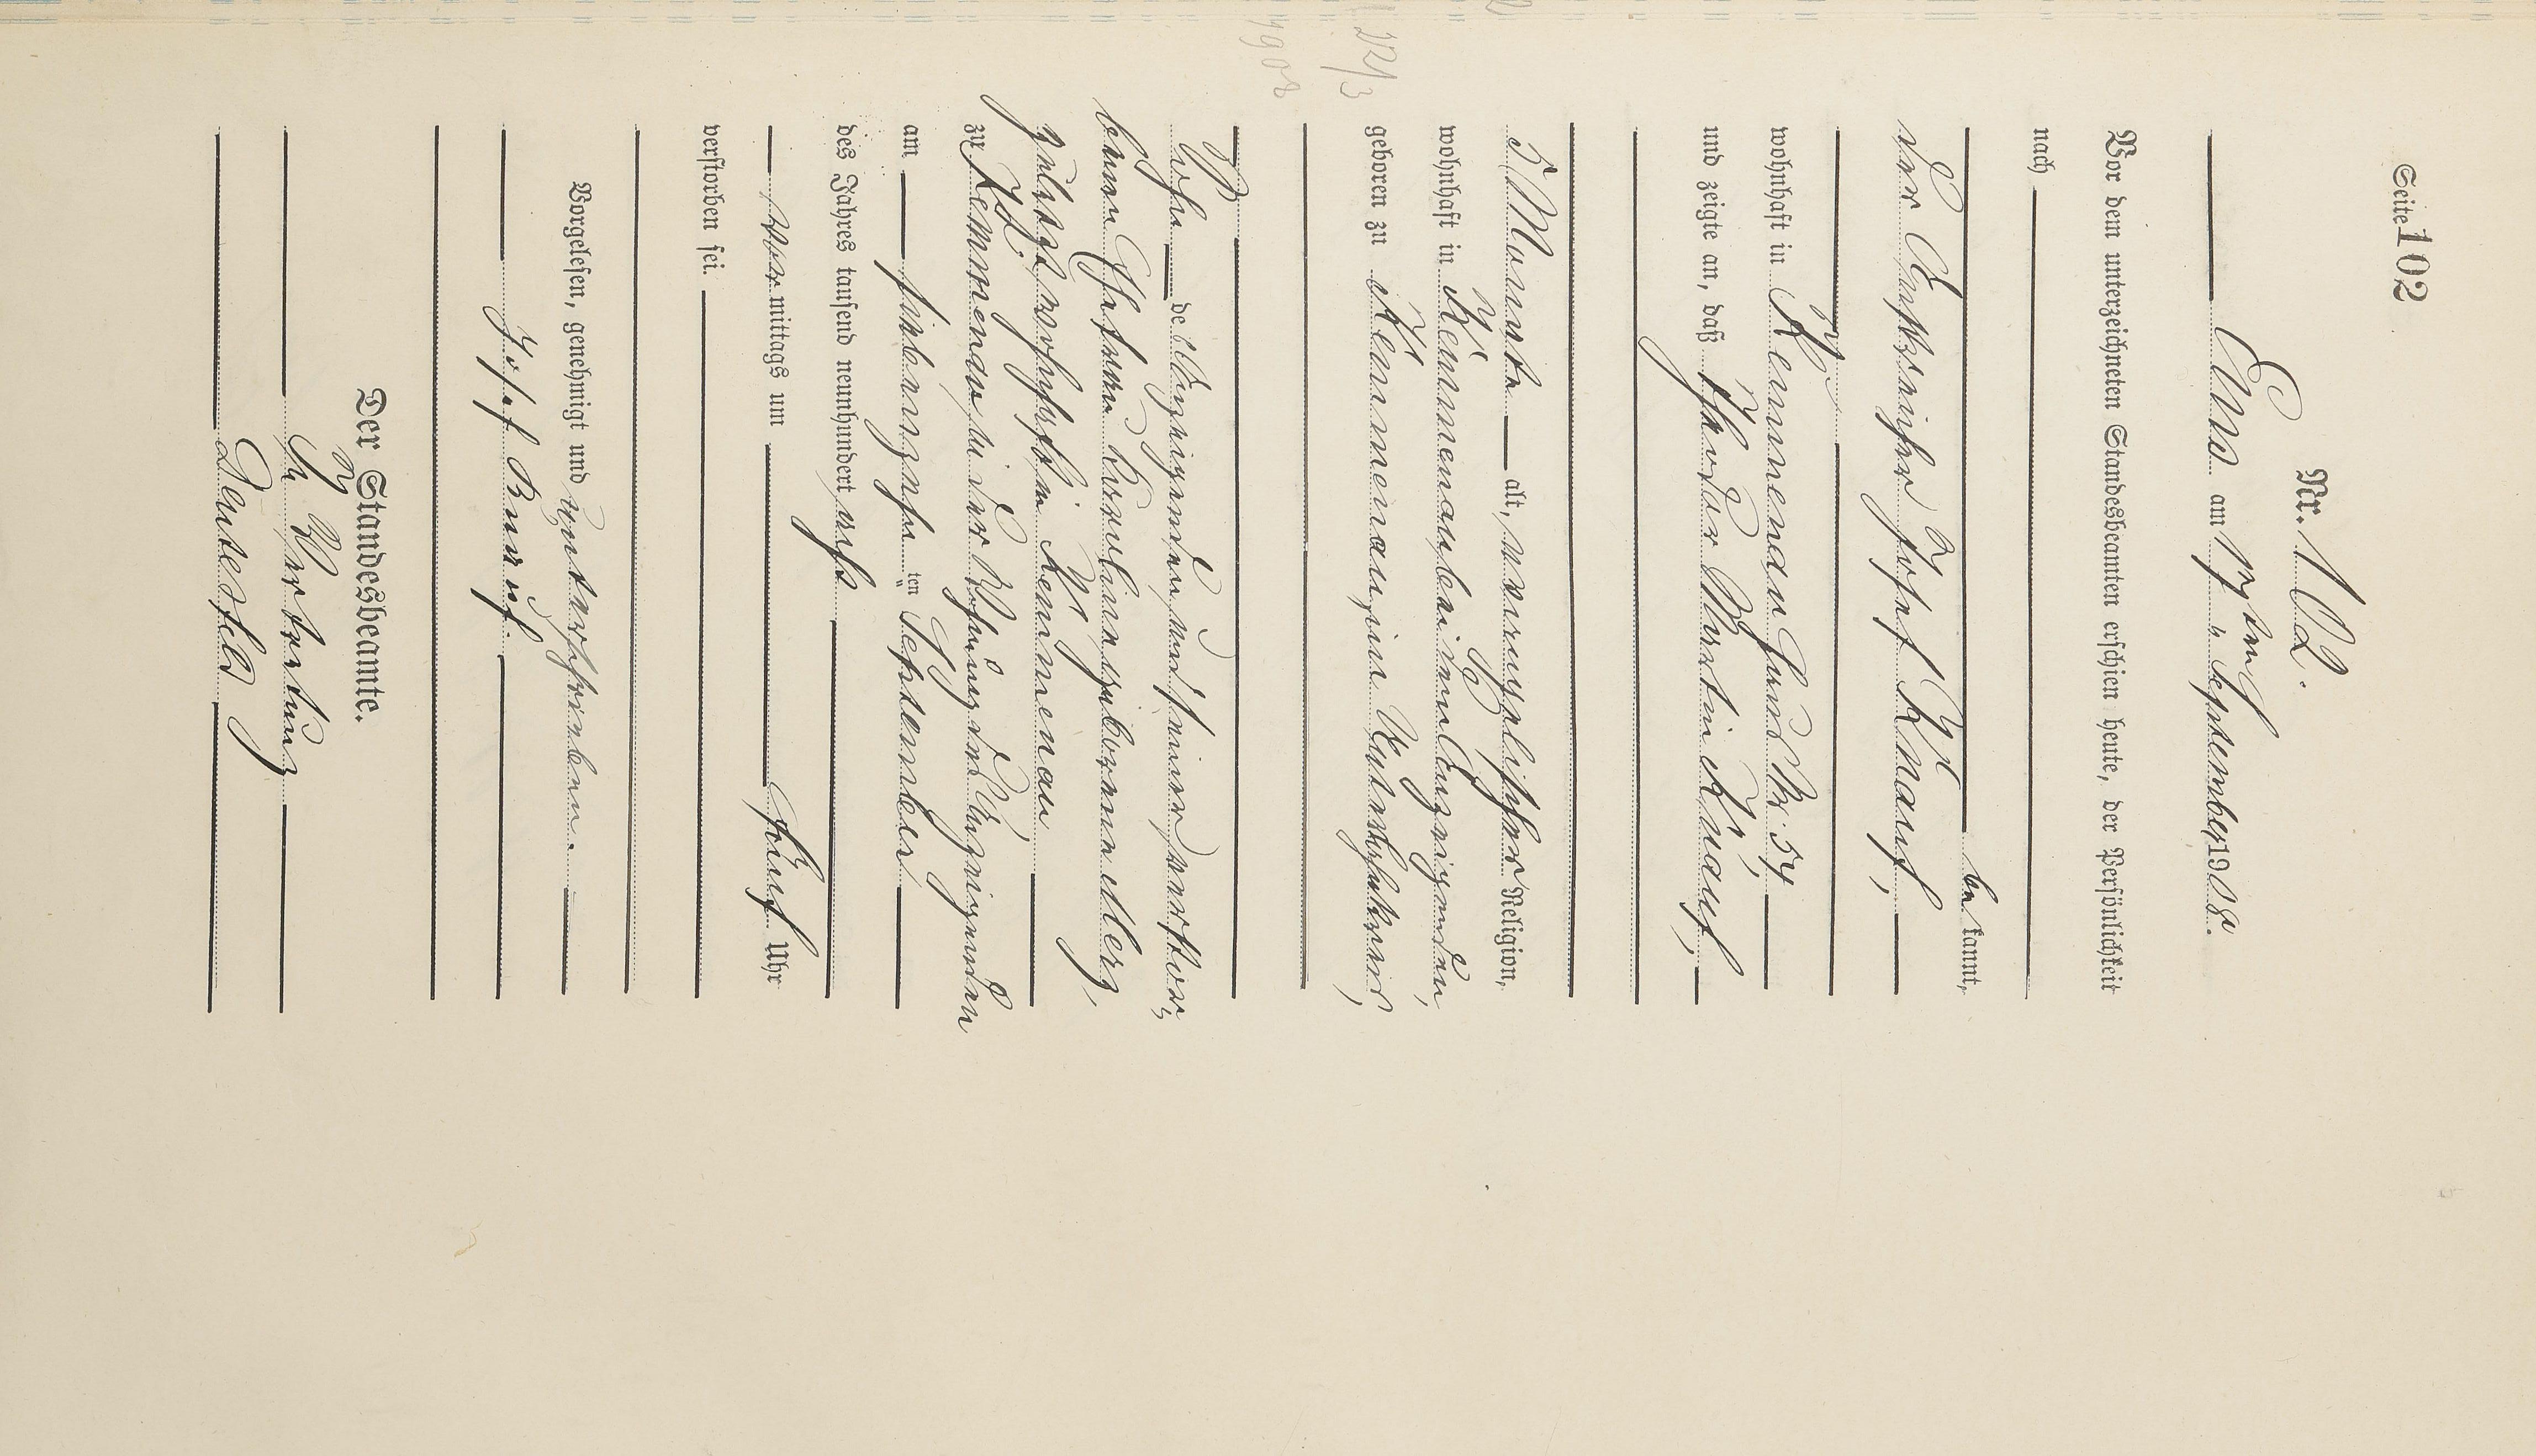 Seite 102
Nr. 102.
Ems am 17ten September 1908.
Vor dem unterzeichneten Standesbeamten erschien heute, der Persönlichkeit
nach
be kannt,
der Josef Knauf,
wohnhaft in Kemmenau Haus Nr. 54
und zeigte an, daß Theodor Martin Knauf,
5 Monate alt, evangelischer Religion,
wohnhaft in Kemmenau bei dem Anzeigenden,
geboren zu Kemmenau, im Unterlahnkreis,
Sohn des Anzeigenden und seiner verstor-
benen Ehefrau Karoline geborenen Merz,
zuletzt wohnhaft in Kemmenau
zu Kemmenau in der Wohnung des Anzeigenden
am siebenzehnten September
des Jahres tausend neunhundert acht
vor mittags um fünf Uhr
verstorben sei.
Vorgelesen, genehmigt und unterschrieben.
Josef Knauf.
Der Standesbeamte.
In Vertretung